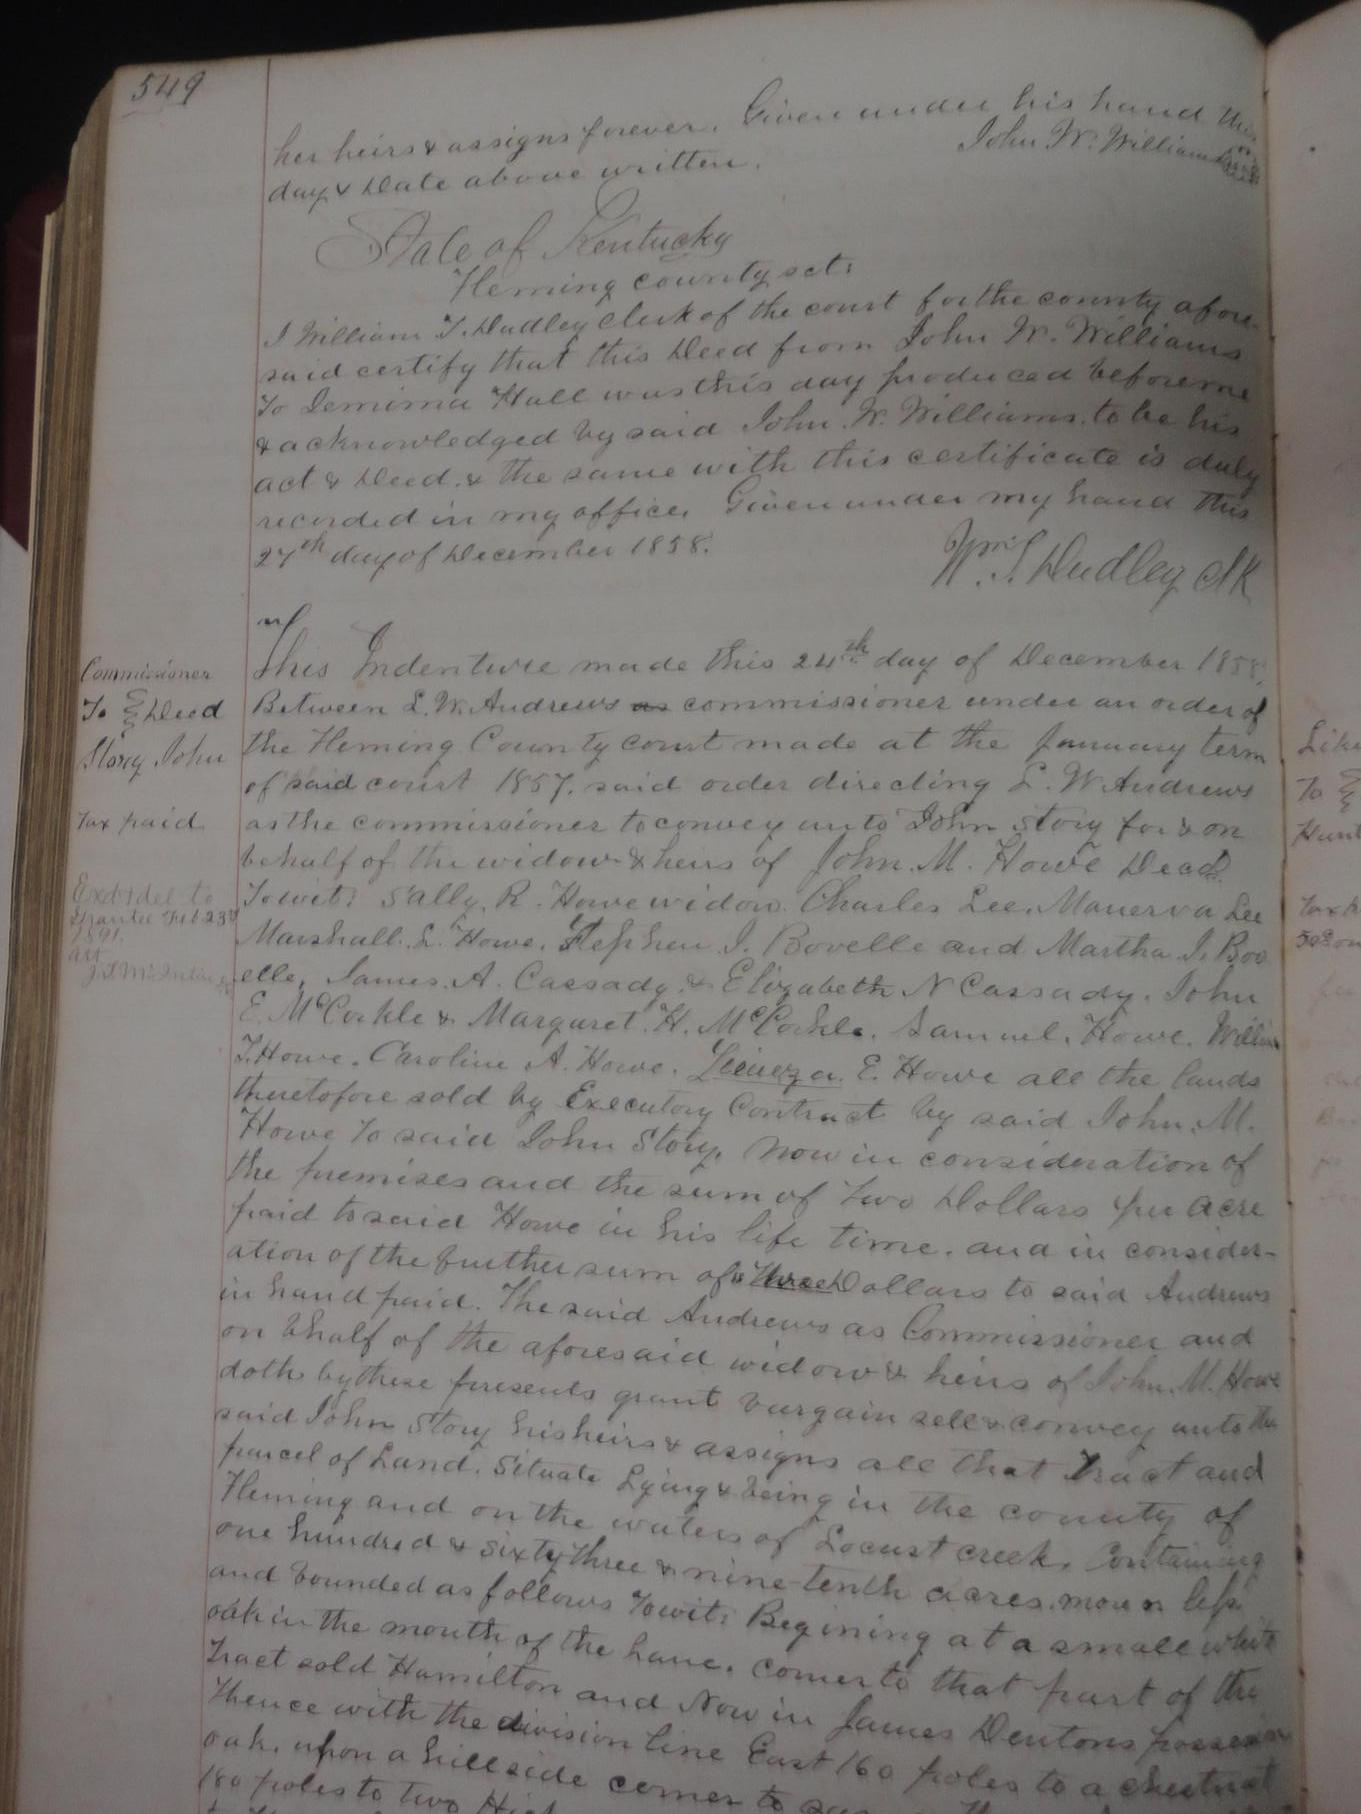 549
her heirs & assigns forever. Given under his hand this
day & Date above written. John W. Williams
State of Kentucky
Fleming county sct:
I William T. Dudley clerk of the court for the county afore-
said certify that this Deed from John W. Williams
To Jemima Hall was this day produced before me
& acknowledged by said John W. Williams. to be his
act & Deed. & the same with this certificate is duly
recorded in my office. Given under my hand this
27th day of December 1858.
Wm. T. Dudley clk
Commissioner
To Deed
Story John
Tax paid
Exd & del to
Grantee Feb. 23d
1891.
att
This Indenture made this 24th day of December 1858.
Between L. W. Andrews as commissioner under an order of
the Fleming County court made at the January term
of said court 1857. said order directing L. W. Andrews
as the commissioner to convey unto John Story for & on
behalf of the widow & heirs of John. M. Howe Decd.
Towit: Sally. R. Howe widow. Charles Lee. Manerva Lee
Marshall. L. Howe. Stephen I. Bovelle and Martha. I. Bov
elle, James. A. Cassady. & Elizabeth N Cassady. John
E. McCorkle & Margaret. H. McCorkle. Samuel. Howe. William
T. Howe. Caroline A. Howe. E. Howe all the lands
theretofore sold by Executory Contract by said John. M.
Howe To said John Story. Now in consideration of
the premises and the sum of Two Dollars per acre
paid to said Howe in his life time. and in consider-
ation of the further sum of Three Dollars to said Andrews
in hand paid. The said Andrews as Commissioner and
on bhalf of the aforesaid widow & heirs of John. M. Howe
doth by these presents grant bargain sell & convey unto the
said John Story his heirs & assigns all that Tract and
parcel of Land. Situate Lying & being in the county of
Fleming and on the waters of Locust creek. Containing
one hundred & sixty three & nine-tenth acres. more or less
and bounded as follows Towit: Begining at a small white
oak in the mouth of the lane. corner to that part of the
Tract sold Hamilton and Now in James Dentons possession
Thence with the division line East 160 poles to a chestnut
oak. upon a hillside corner to
180 poles to two